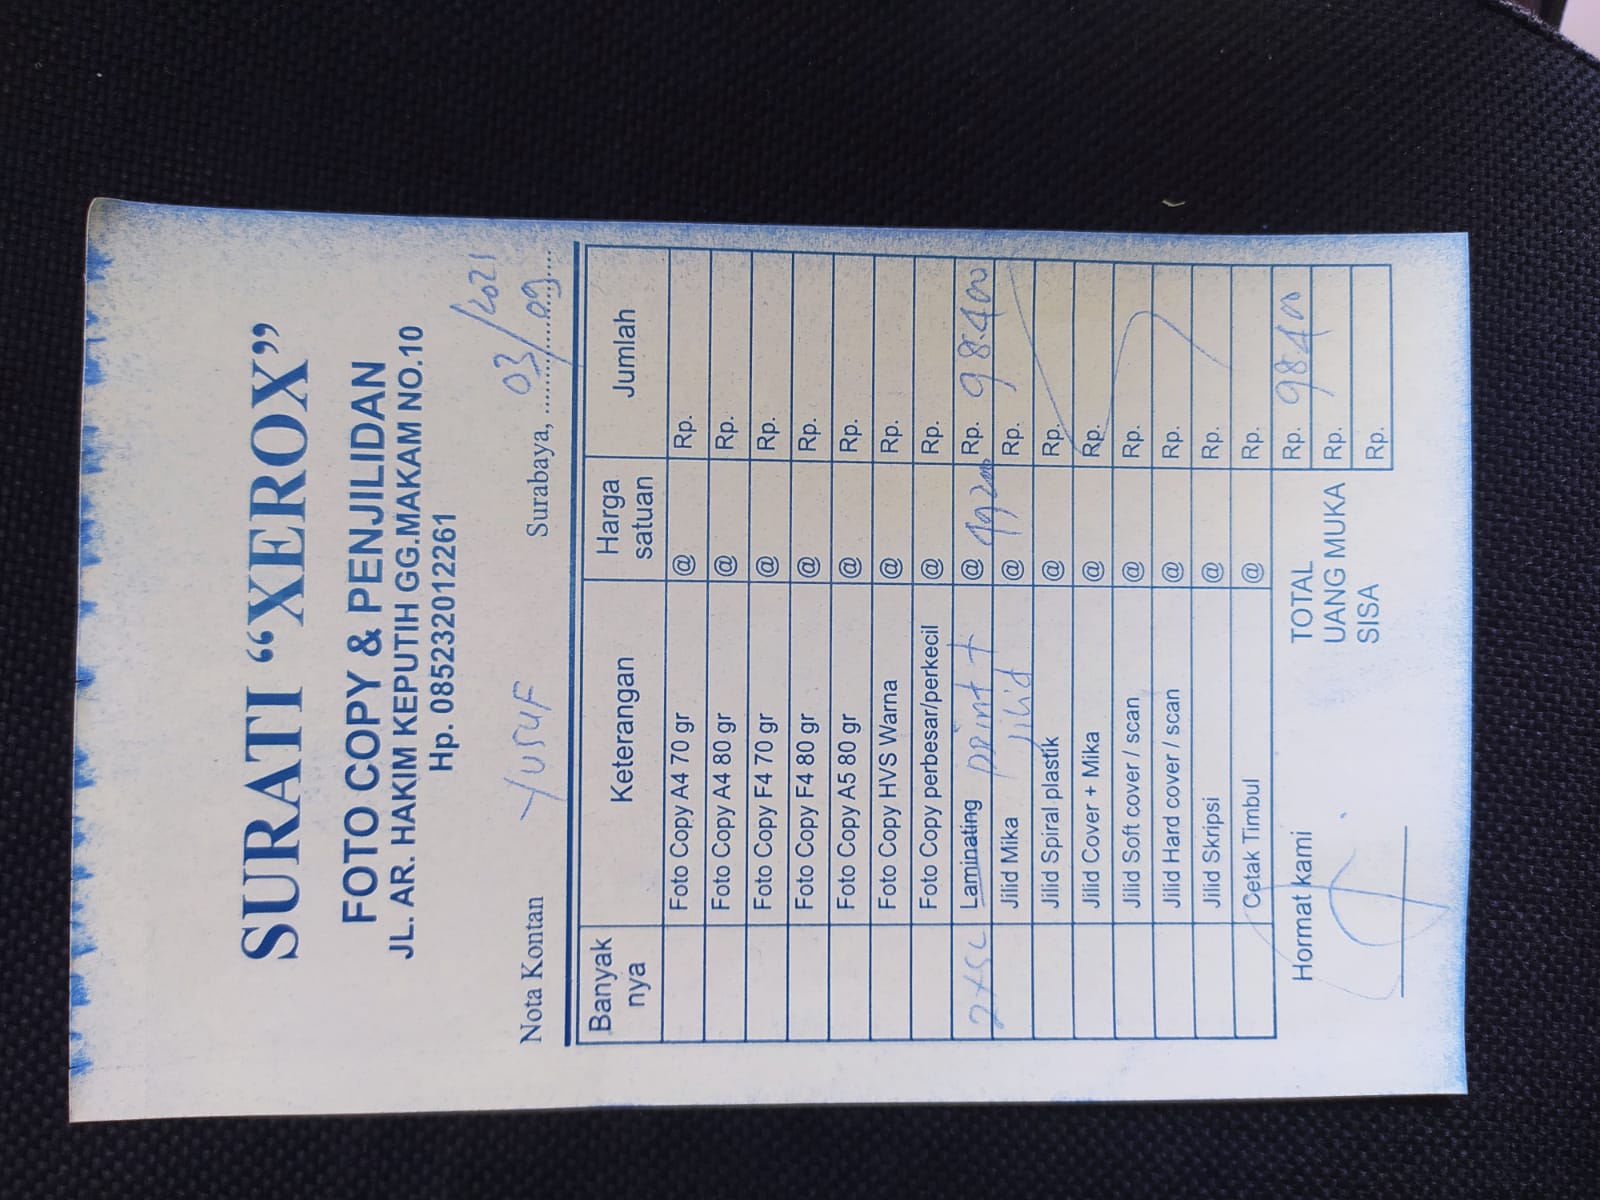 SURATI “XEROX”
FOTO COPY & PENJILIDAN
JL. AR. HAKIM KEPUTIH GG.MAKAM NO.10
Hp. 085232012261
Nota Kontan YUSUF Surabaya, 03/09/2021
Banyak nya Keterangan Harga satuan Jumlah
Foto Copy A4 70 gr @ Rp.
Foto Copy A4 80 gr @ Rp.
Foto Copy F4 70 gr @ Rp.
Foto Copy F4 80 gr @ Rp.
Foto Copy A5 80 gr @ Rp.
Foto Copy HVS Warna @ Rp.
Foto Copy perbesar/perkecil @ Rp.
Laminating print + @ Rp. 98.400
Jilid Mika jilid @ Rp.
Jilid Spiral plastik @ Rp.
Jilid Cover + Mika @ Rp.
Jilid Soft cover / scan @ Rp.
Jilid Hard cover / scan @ Rp.
Jilid Skripsi @ Rp.
Cetak Timbul @ Rp.
Hormat kami TOTAL Rp. 98.400
UANG MUKA Rp.
SISA Rp.